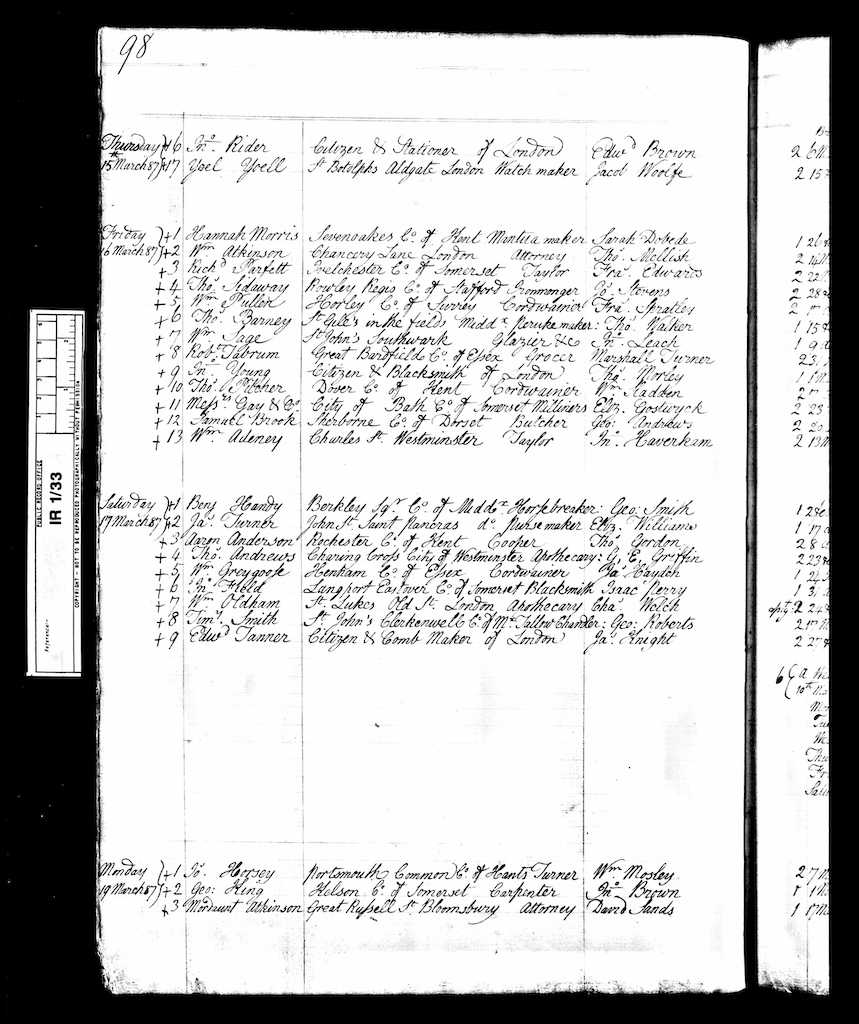 98
Thursday }+16 Jno. Rider Citizen & Stationer of London Edwd Brown
15th March 87 }+17 Yoel Yoell St Botolphs Aldgate London Watch maker Jacob Woolfe 2 15
Friday }+1 Hannah Morris Sevenoakes Co. of Kent Mantua maker Sarah Dobede 1 26
16 March 87 }+2 Wm Atkinson Chancery Lane London Attorney Tho. Mellish
+3 Richd Parfett Ivelchester Co. of Somerset Taylor Fra. Edwards
+4 Tho. Sidaway Rowley Regis Co. of Stafford Ironmonger Jo. Stevens
+5 Wm Pullen Horley Co. of Surrey Cordwainer Fra. Spratley
+6 Tho. Barney St Giles in the fields Middx Peruke maker: Tho. Walker 1 15
+7 Wm Sage St John's Southwark Glazier &c Jno. Leach
+8 Robt Tabrum Great Bardfield Co. of Essex Grocer Marshall Turner
+9 Jno. Young Citizen & Blacksmith of London Tho. Morley
+10 Tho. Pitcher Dover Co. of Kent Cordwainer Wm Sladden
+11 Messrs Gay & Co. City of Bath Co. of Somerset Milliners Eliz. Goslwyck 2 23
+12 Samuel Brook Sherborne Co. of Dorset Butcher Geo: Andrews 2 20
+13 Wm Adeney Charles St. Westminster Taylor Jno. Haverkam 2 13
Saturday }+1 Benj Handy Berkley Sqr Co. of Middx Horsebreaker: Geo: Smith
17 March 87 }+2 Ja. Turner John St. Saint Pancras do. Pursemaker Eliz. Williams 1 17
+3 Aaron Anderson Rochester Co. of Kent Cooper Tho. Gordon 2 8
+4 Tho. Andrews Charing Cross City of Westminster Apothecary: G. E. Griffin
+5 Wm Greygoose Henham Co. of Essex Cordwainer Ja. Haydch
+6 Jno. Field Langport Eastover Co. of Somerset Blacksmith Isaac Perry
+7 Wm Oldham St. Lukes Old St. London Apothecary Cha. Welch 2 24
+8 Timy. Smith St. John's Clerkenwell Co. of Mx Tallow Chandler: Geo: Roberts
+9 Edwd Tanner Citizen & Comb Maker of London Ja. Knight
Monday }+1 Jo. Horsey Portsmouth Common Co. of Hants Turner Wm Mosley 2 7
19 March 87 }+2 Geo: King Kelson Co. of Somerset Carpenter Jno. Brown
+3 Mordaunt Atkinson Great Russell St. Bloomsbury Attorney David Sands 1 17
PUBLIC RECORD OFFICE
IR 1/33
Reference:-
COPYRIGHT - NOT TO BE REPRODUCED PHOTOGRAPHICALLY WITHOUT PERMISSION